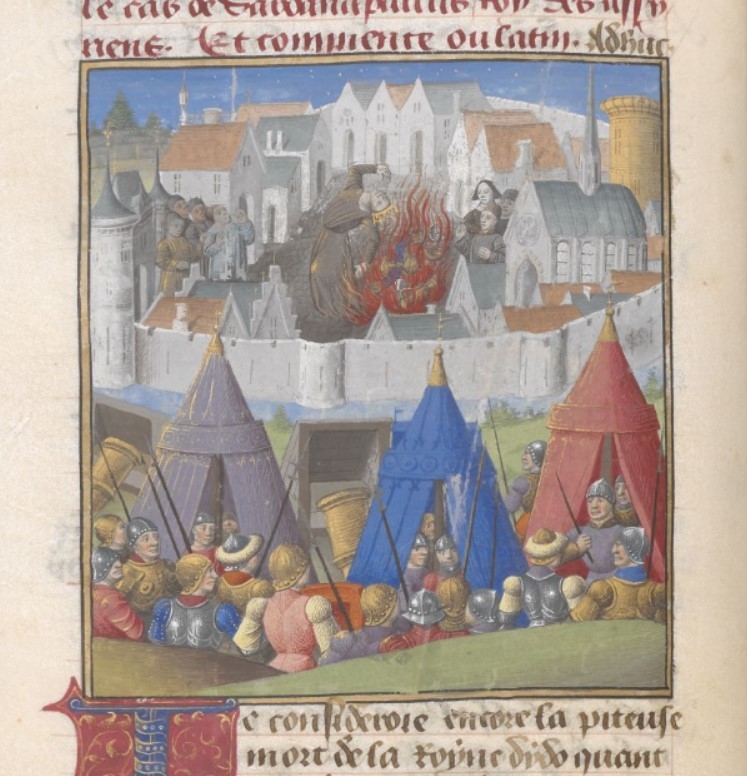 le cas de Sardanapallus roy des assy
riens. Et commence ou latin. Adhuc
Je consideroie encore la piteuse
mort de la Royne dydo quant